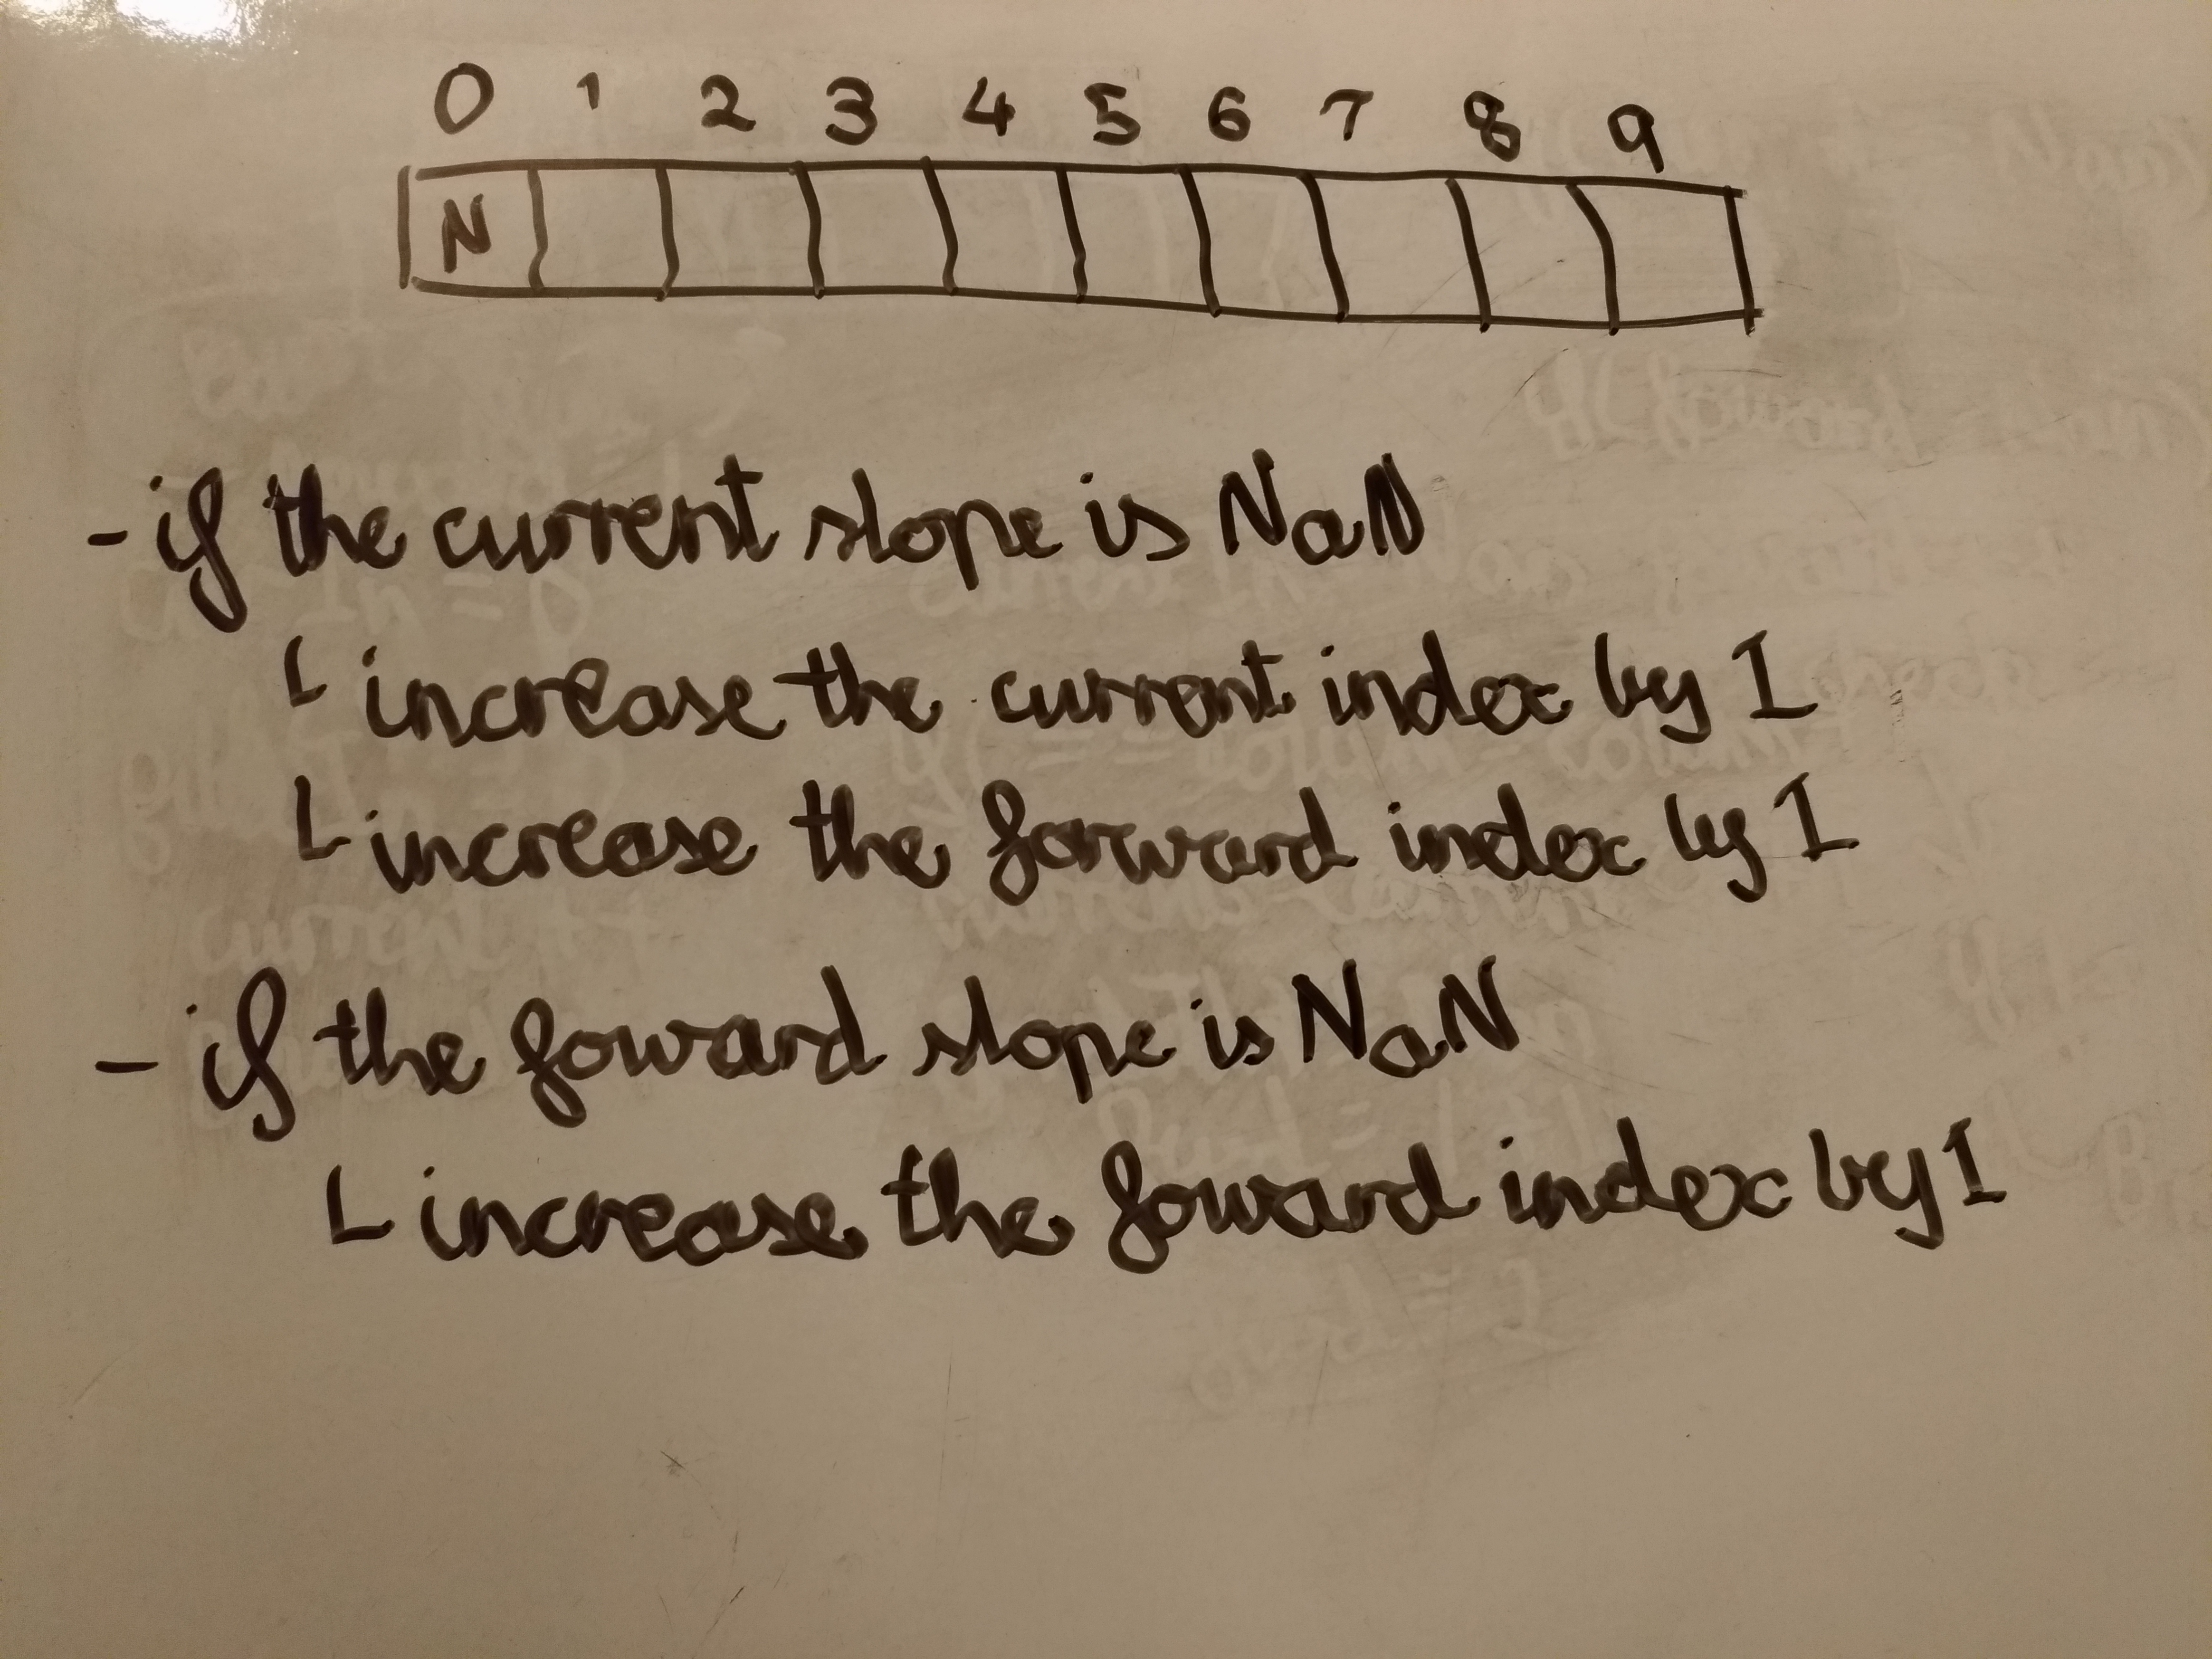 0 1 2 3 4 5 6 7 8 9
N
- if the current slope is NaN
L increase the current index by 1
L increase the forward index by 1
- if the foward slope is NaN
L increase the foward index by 1